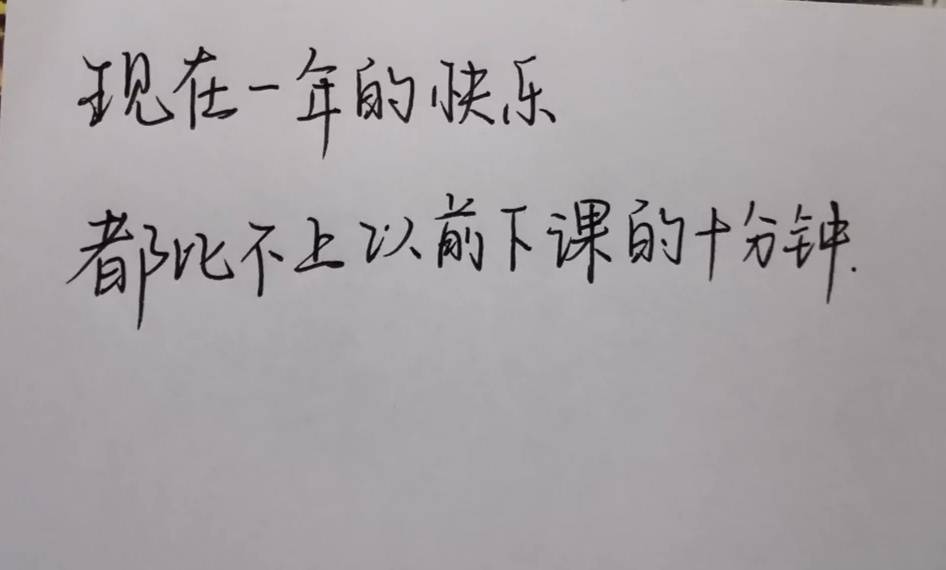 现在一年的快乐
都比不上以前下课的十分钟.